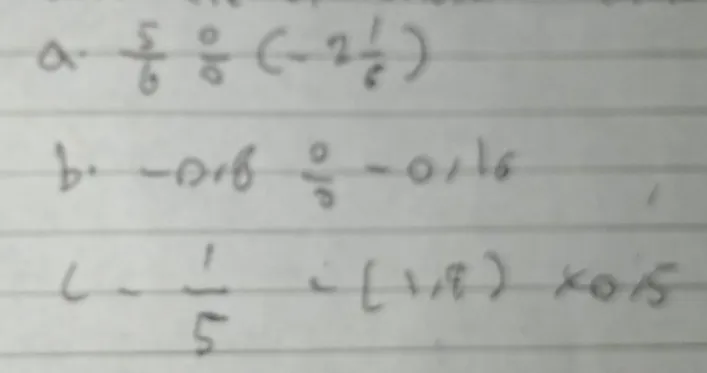 a. 5/6 ÷ (-2 1/6)
b. -0,8 ÷ -0,16
c - 1/5 - (1,8) × 0,5